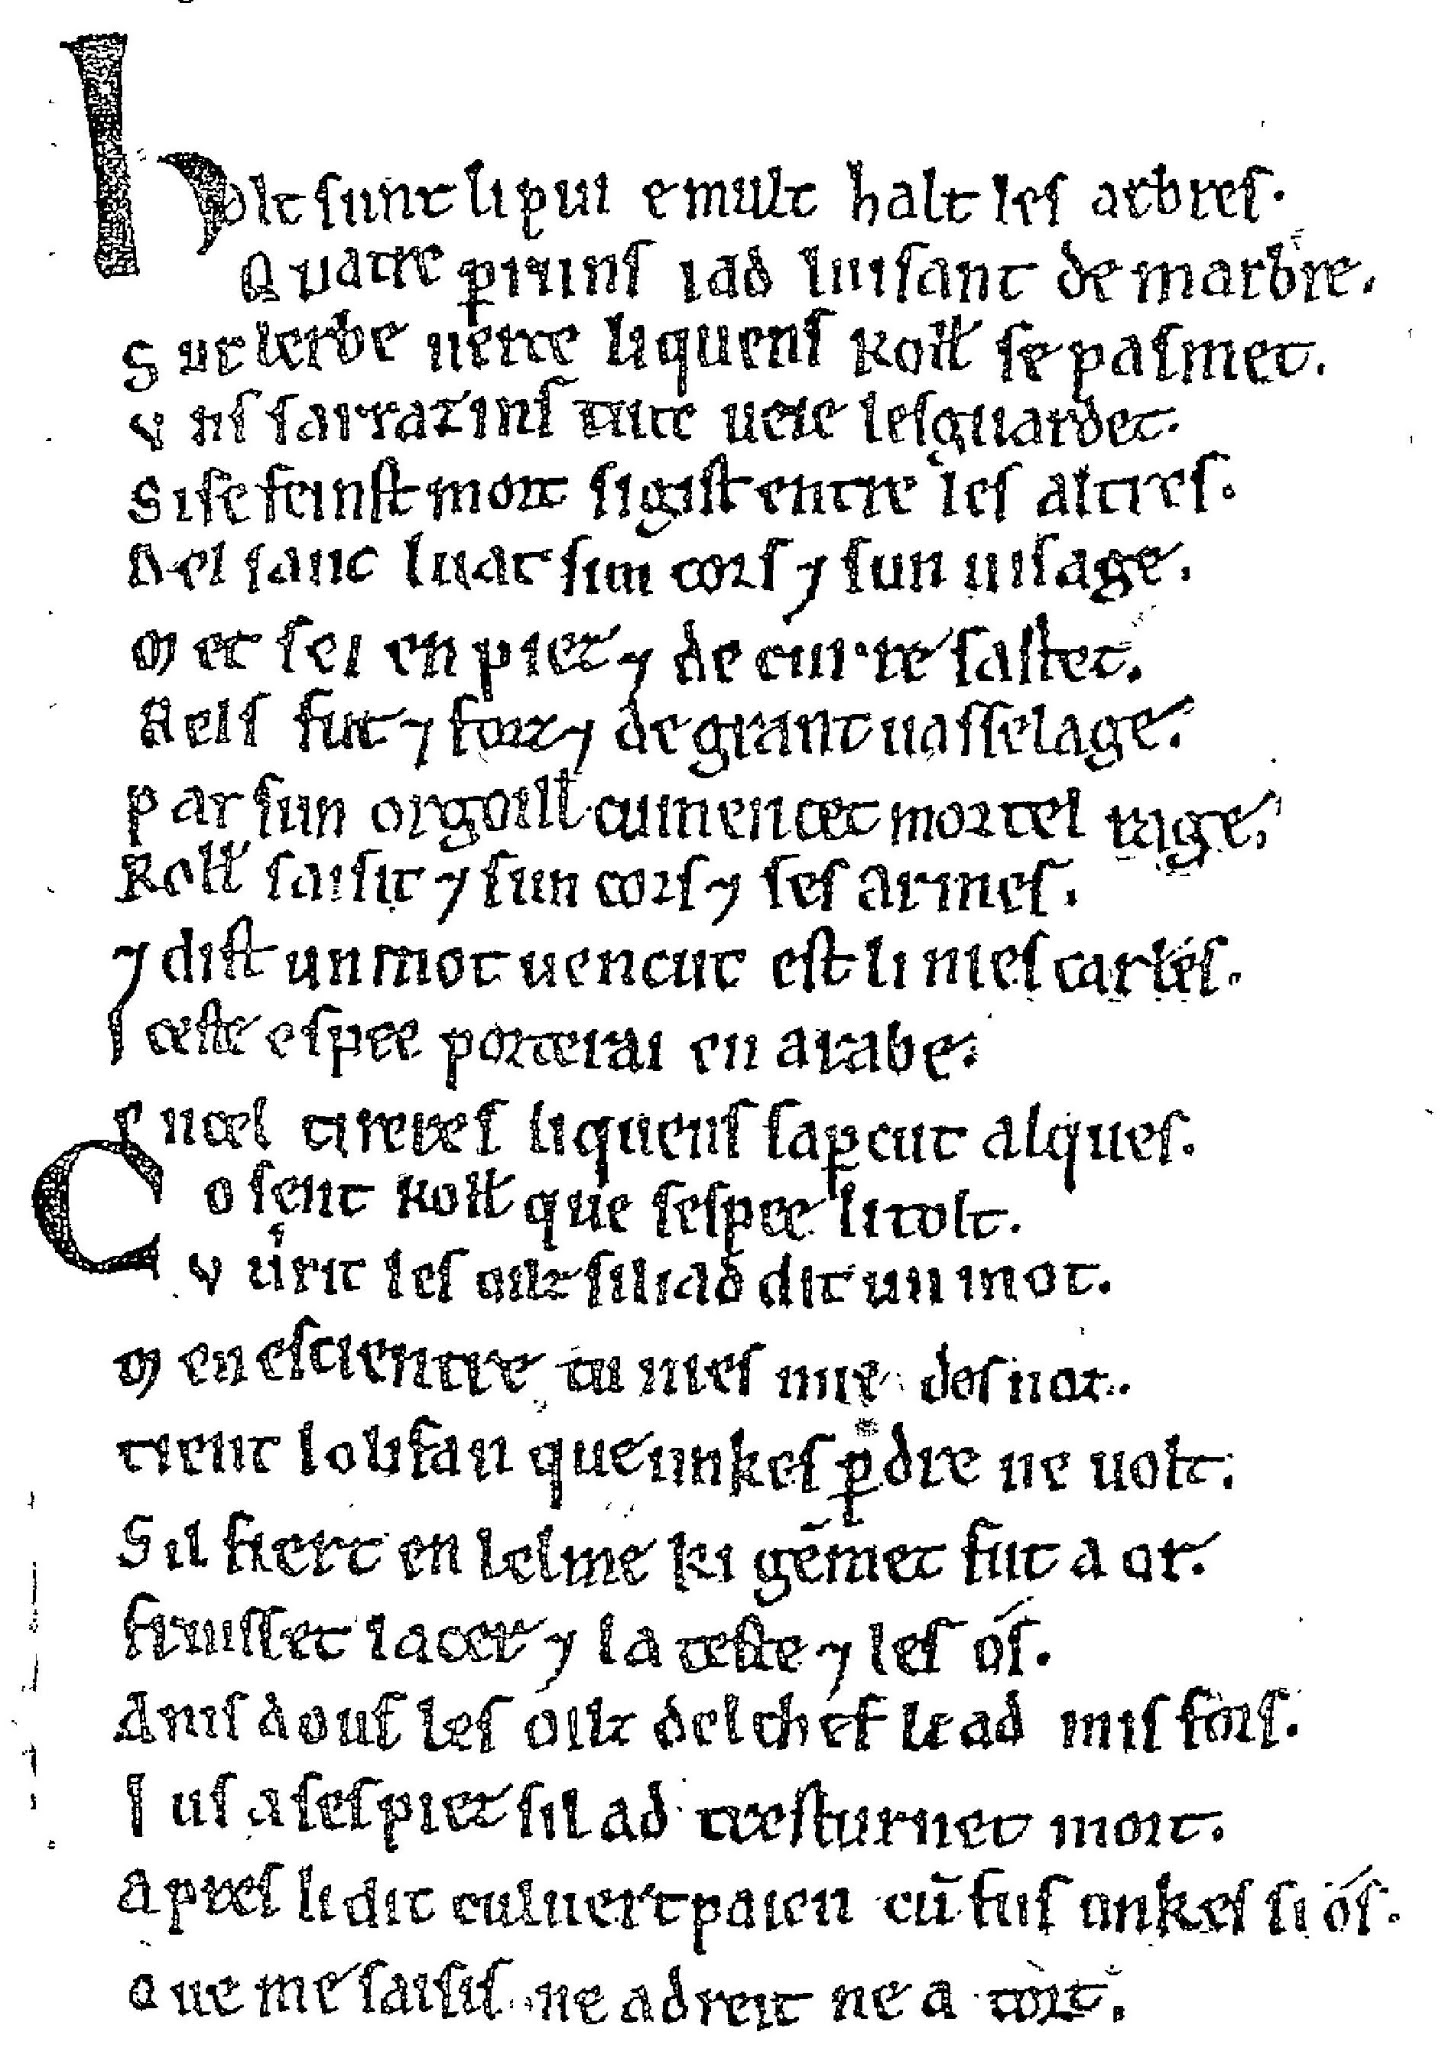 holt sunt li pui e mult halt les arbres.
Quatre perruns iad luisant de marbre.
Sur lerbe uerte li quens Roll se pasmet.
uns sarrazins tute ueie lesguardet.
Si se feinst mort si gist entre les altres.
Del sanc luat sun cors ⁊ sun uisage.
Met sei en piez ⁊ de curre sastet.
Bels fut ⁊ forz ⁊ de grant uasselage.
Par sun orgoill cumencet mortel rage.
Roll saisit ⁊ sun cors ⁊ ses armes.
⁊ dist un mot uencut est li nies carles.
Iceste espee porterai en arabe.
En cel tireres li quens saperçut alques.
Co sent Roll que sespee li tolt.
Uurit les oilz si li ad dit un mot.
Men escientre tu nies mie des noz.
tient lolifan que unkes perdre ne uolt.
Sil fiert en lelme ki gemet fut a or.
fruisset lacer ⁊ la teste ⁊ les os.
Amsdous les oilz del chef li ad mis fors.
Jus a ses piez sil ad tresturnet mort.
Apres li dit culuert paien cū fus unkes si os.
Que me saisis ne a dreit ne a tort.